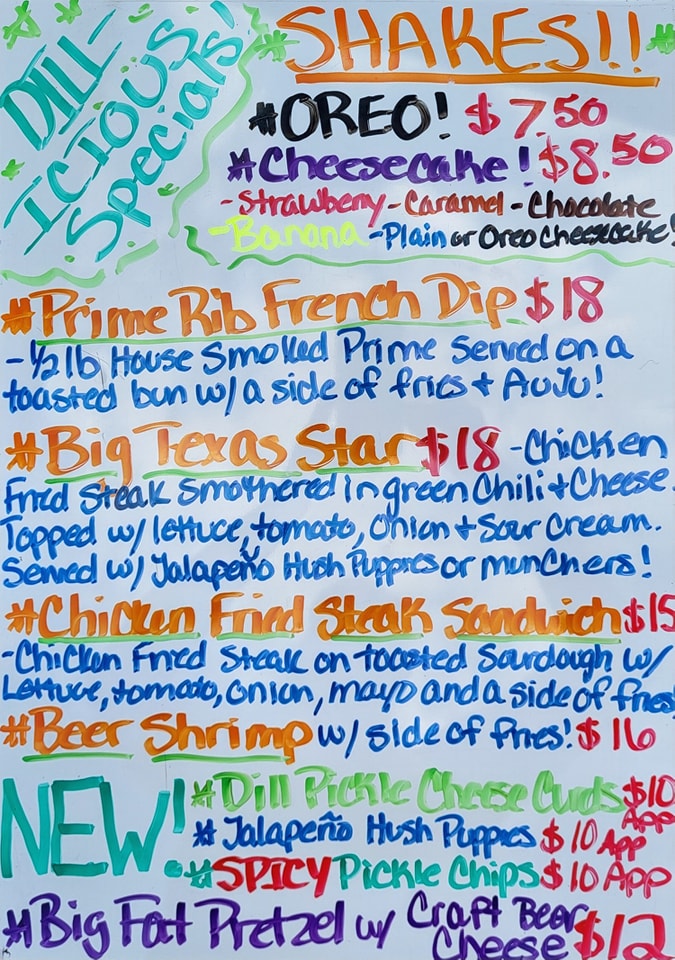 DILL-
ICIOUS
Specials!
SHAKES!!
#OREO! $7.50
#Cheesecake! $8.50
-Strawberry -Caramel -Chocolate
-Banana -Plain or Oreo Cheesecake!
#Prime Rib French Dip $18
-1/2 lb House Smoked Prime Served on a
toasted bun w/ a side of fries + AuJu!
#Big Texas Star $18 -Chicken
Fried Steak Smothered in green Chili + Cheese.
Topped w/ lettuce, tomato, Onion + Sour Cream.
Served w/ Jalapeño Hush Puppies or munchers!
#Chicken Fried Steak Sandwich $15
-Chicken Fried Steak on toasted Sourdough w/
Lettuce, tomato, Onion, mayo and a side of fries!
#Beer Shrimp w/ side of fries! $16
NEW!
#Dill Pickle Cheese Curds $10 App
#Jalapeño Hush Puppies $10 App
#SPICY Pickle Chips $10 App
#Big Fat Pretzel w/ Craft Beer Cheese $12